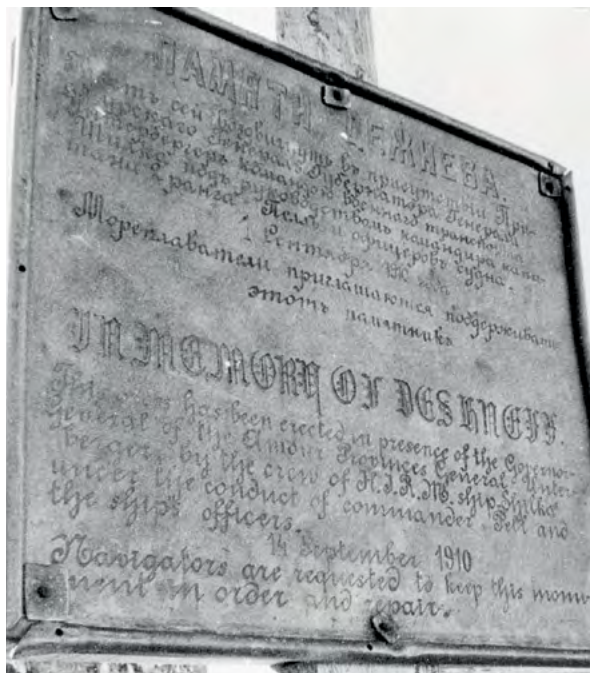 ПАМЯТИ ДЕЖНЕВА.
Крестъ сей воздвигнутъ въ присутствiи При-
амурскаго Генералъ Губернатора Генерала
Унтербергеръ командою военнаго транспорта
Шилка подъ руководствомъ командира капи-
тана 2 ранга Пелль и офицеровъ судна.
1 Сентября 1910 года
Мореплаватели приглашаются поддерживать
этотъ памятникъ
IN MEMORY OF DESHNEFF.
This cross has been erected in presence of the Governor-
General of the Amour Provinces General Unter-
berger, by the crew of H.I.R.M. ship Shilka
under the conduct of commander Pell and
the ship's officers.
14 September 1910
Navigators are requested to keep this monu-
ment in order and repair.